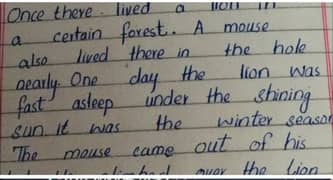 Once there. lived a lion in
a certain forest.. A mouse
also lived there in the hole
nearly. One day the lion was
fast asleep under the shining
sun. It was the winter season
The mouse came out of his
over the lion